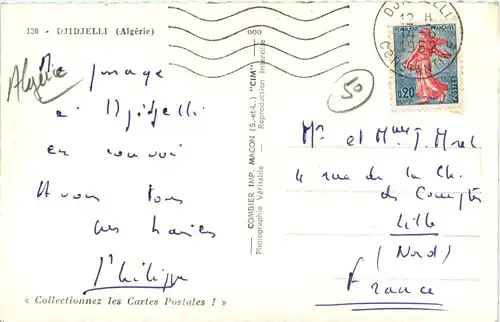 120 - DJIDJELLI (Algérie)
Algérie
image
à Djidjelli
en convoi
A vous tous
Philippe
« Collectionnez les Cartes Postales ! »
COMBIER IMP. MACON (S.-et-L.) "CIM"
Photographie Véritable - Reproduction Interdite
DJIDJELLI
12 H
CONSTANTINE
0,20
POSTES
50
Mr et Mme J. Morel
4 rue de la Ch.
des Comptes
Lille
(Nord)
France